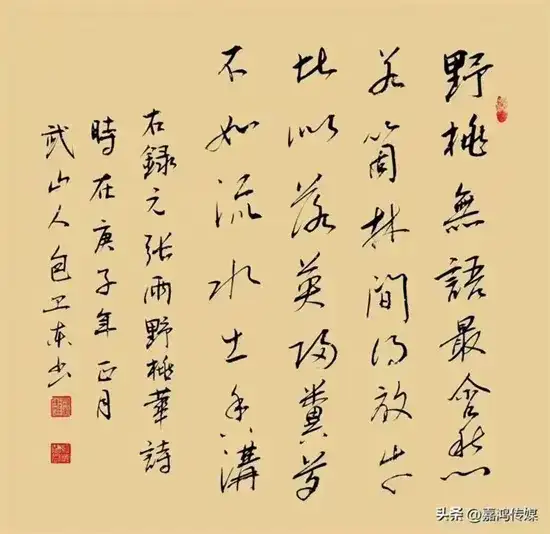 野桃無語最含愁
若箇林間得放
比似落英歸糞
不如流水香溝
右錄元張雨野桃華詩
時在庚子年正月
武山人包卫东书
头条 @嘉鸿传媒